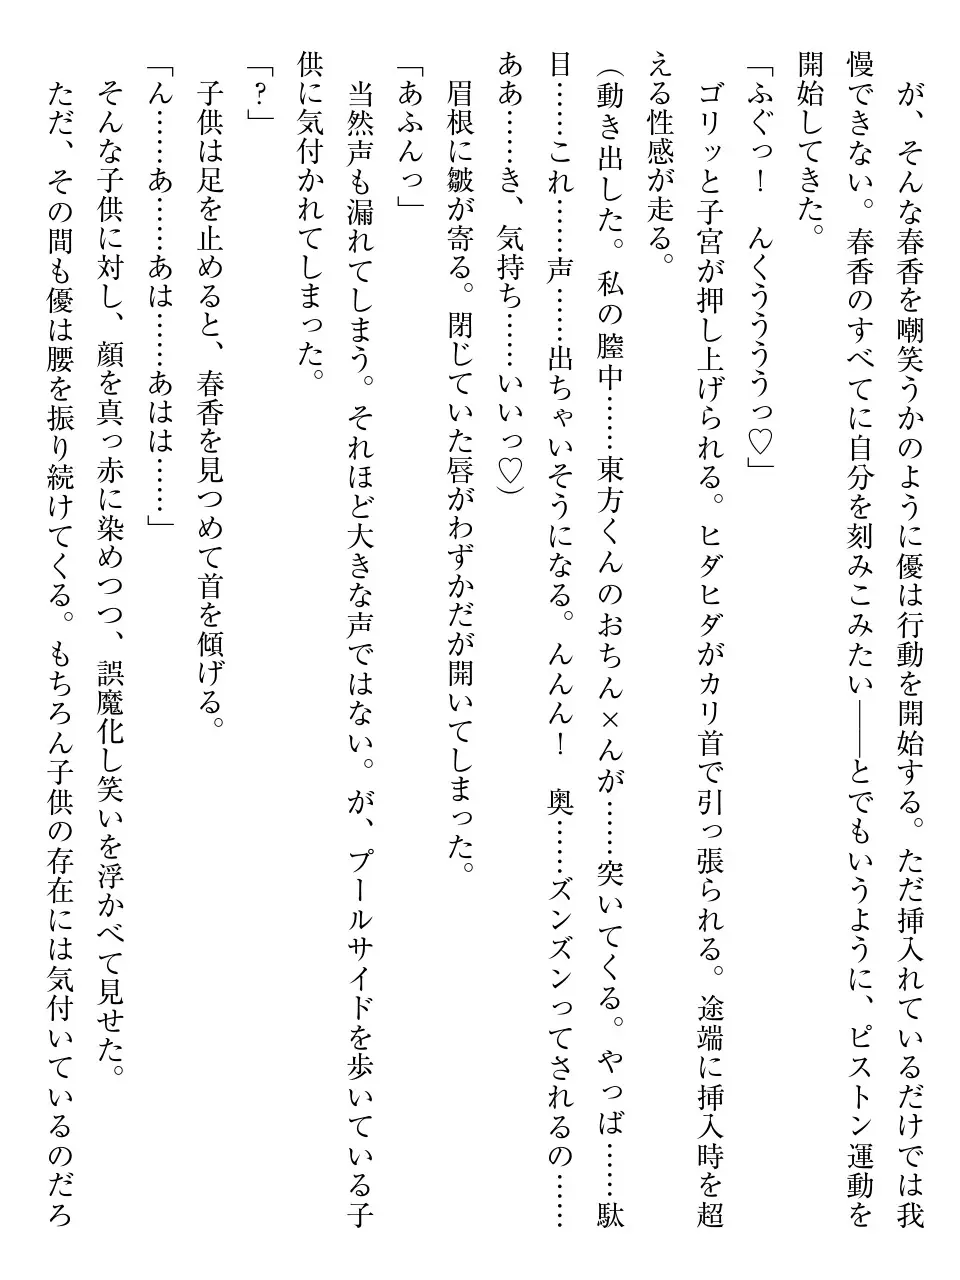 が、そんな春香を嘲笑うかのように優は行動を開始する。ただ挿入れているだけでは我
慢できない。春香のすべてに自分を刻みこみたい――とでもいうように、ピストン運動を
開始してきた。
「ふぐっ！　んくうううっ♡」
ゴリッと子宮が押し上げられる。ヒダヒダがカリ首で引っ張られる。途端に挿入時を超
える性感が走る。
（動き出した。私の膣中……東方くんのおちん×んが……突いてくる。やっば……駄
目……これ……声……出ちゃいそうになる。んんん！　奥……ズンズンってされるの……
ああ……き、気持ち……いいっ♡）
眉根に皺が寄る。閉じていた唇がわずかだが開いてしまった。
「あふんっ」
当然声も漏れてしまう。それほど大きな声ではない。が、プールサイドを歩いている子
供に気付かれてしまった。
「？」
子供は足を止めると、春香を見つめて首を傾げる。
「ん……あ……あは……あはは……」
そんな子供に対し、顔を真っ赤に染めつつ、誤魔化し笑いを浮かべて見せた。
ただ、その間も優は腰を振り続けてくる。もちろん子供の存在には気付いているのだろ